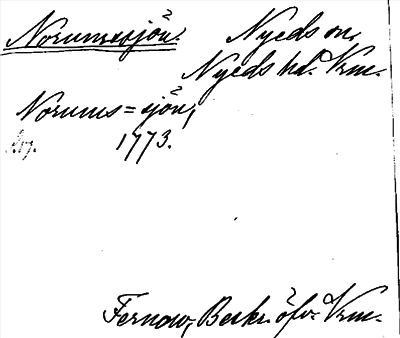 Norumssjön. Nyeds sn.
Nyeds hd. Vrm.
Norums=sjön,
1773.
Fernow, Beskr. öfv. Vrm.